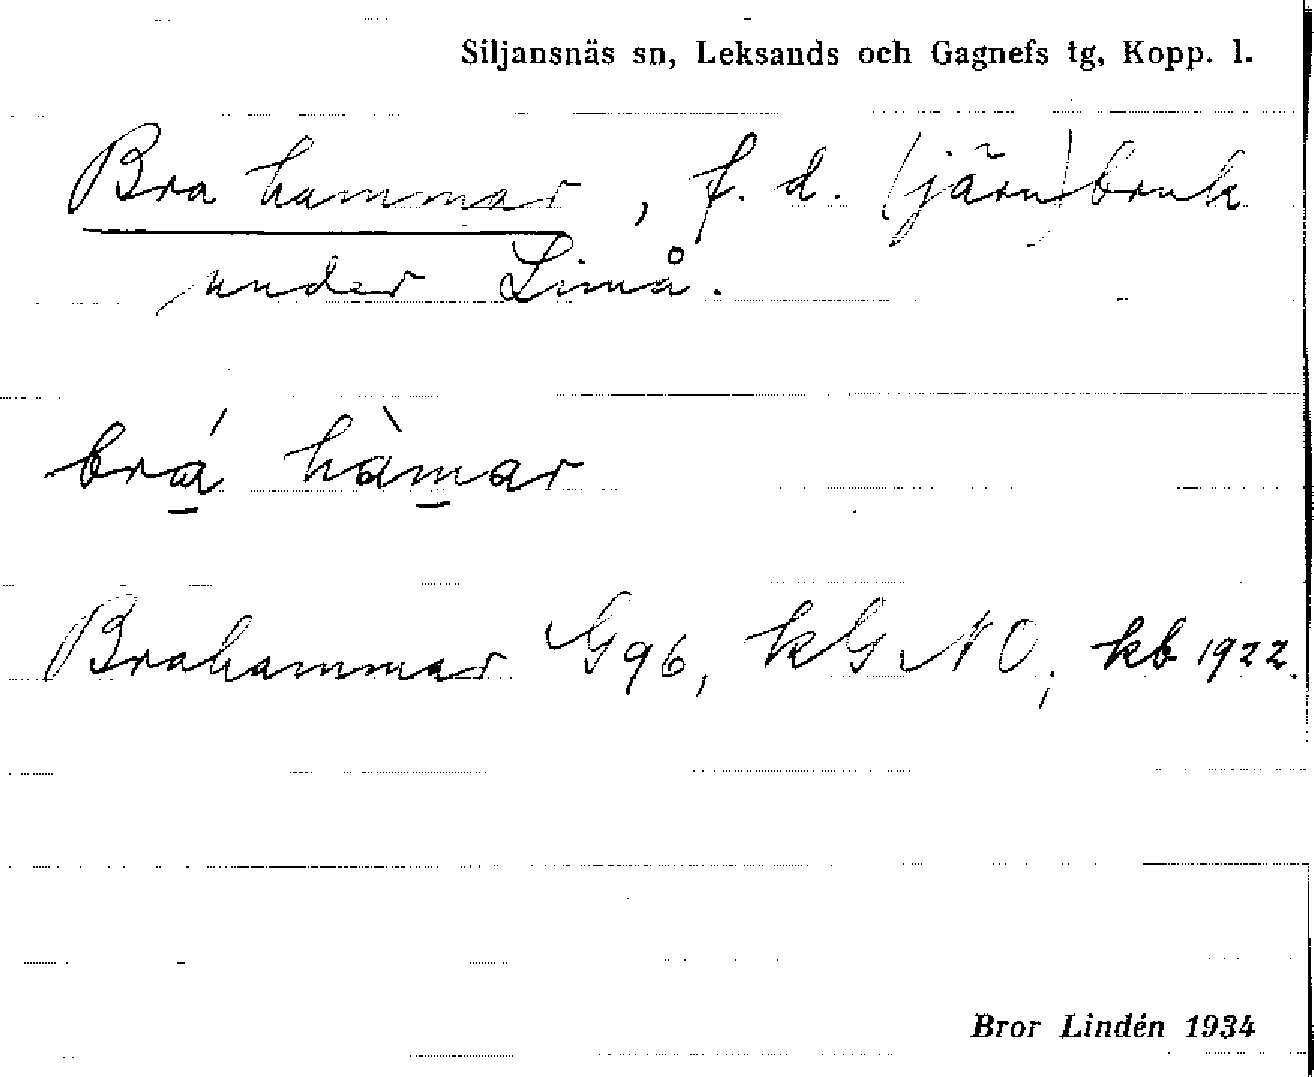 Siljansnäs sn, Leksands och Gagnefs tg, Kopp. l.
Bra hammar, f. d. (järn)bruk
under Limå.
brá hàmar
Brahammar G96, kG NO; kb 1922.
Bror Lindén 1934